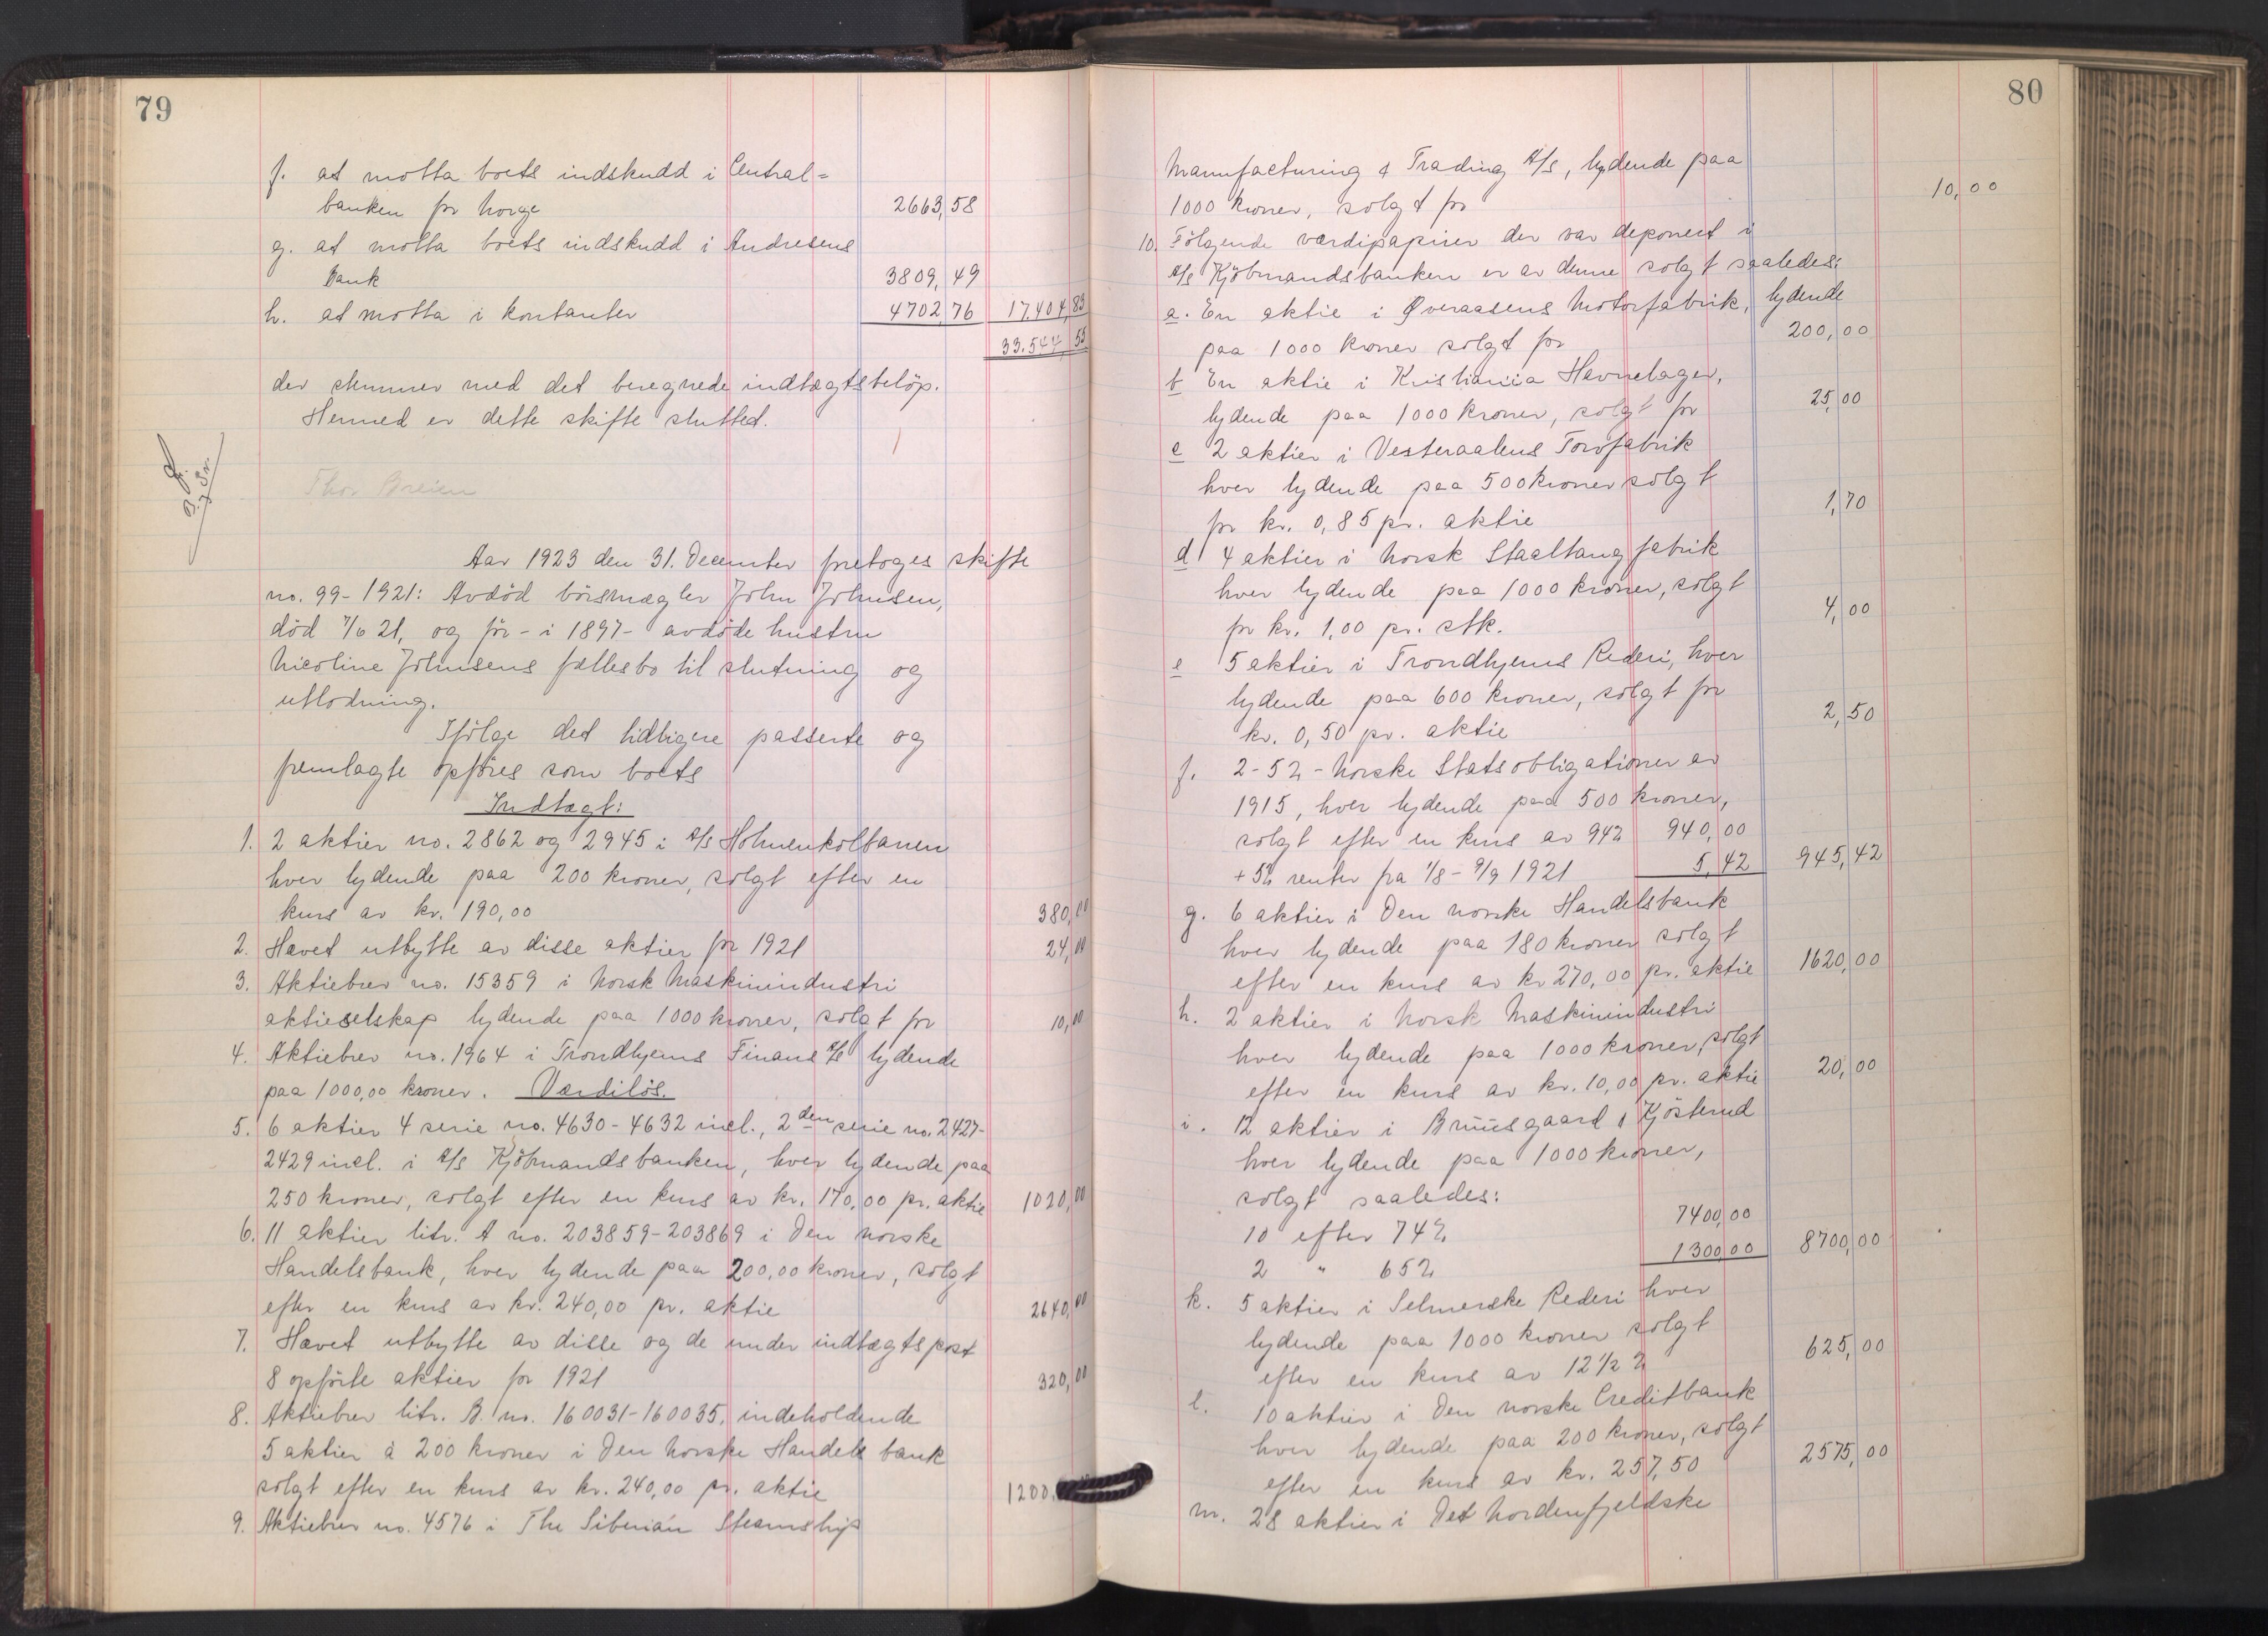 79
f. at motta boets indskudd i Central=
banken for Norge 2663,58
g. at motta boets indskudd i Andresens
Bank 3809,49
h. at motta i kontanter 4702,76 17.404,83
33.544,55
der stemmer med det beregnede indtægtsbeløp.
Hermed er dette skifte sluttet.
Thor Breien
Aar 1923 den 31. December foretoges skifte
no. 99-1921: Avdöd börsmægler John Johnsen,
död 7/6 21, og för - i 1897 - avdöde hustru
Nicoline Johnsens fællesbo til slutning og
utlodning.
Ifölge det tidligere passerte og
fremlagte opföres som boets
Indtægt:
1. 2 aktier no. 2862 og 2945 i A/S Holmenkolbanen
hver lydende paa 200 kroner, solgt efter en
kurs av kr. 190,00 380,00
2. Hævet utbytte av disse aktier for 1921 24,00
3. Aktiebrev no. 15359 i Norsk Maskinindustri
aktieselskap lydende paa 1000 kroner, solgt for 10,00
4. Aktiebrev no. 1964 i Trondhjems Finans A/S lydende
paa 1000,00 kroner. Værdilös.
5. 6 aktier 4 serie no. 4630-4632 incl., 2den serie no. 2427-
2429 incl. i A/S Kjöbmandsbanken, hver lydende paa
250 kroner, solgt efter en kurs av kr. 170,00 pr. aktie 1020,00
6. 11 aktier litr. A no. 203859-203869 i Den norske
Handelsbank, hver lydende paa 200,00 kroner, solgt
efter en kurs av kr. 240,00 pr. aktie 2640,00
7. Hævet utbytte av disse og de under indtægtspost
8 opförte aktier for 1921 320,00
8. Aktiebrev litr. B. no. 160031-160035, indeholdende
5 aktier à 200 kroner i Den Norske Handels bank
solgt efter en kurs av kr. 240,00 pr. aktie 1200,
9. Aktiebrev no. 4576 i The Siberian Steamship
80
Manufacturing & Trading A/S, lydende paa
1000 kroner, solgt for 10,00
10. Fölgende værdipapirer der var deponert i
A/S Kjöbmandsbanken er av denne solgt saaledes:
a. En aktie i Øveraasens Motorfabrik, lydende
paa 1000 kroner solgt for 200,00
b En aktie i Kristiania Havnelager,
lydende paa 1000 kroner, solgt for 25,00
c 2 aktier i Vesteraalens Torvfabrik
hver lydende paa 500 kroner solgt
for kr. 0,85 pr. aktie 1,70
d 4 aktier i Norsk Staaltaugfabrik
hver lydende paa 1000 kroner, solgt
for kr. 1,00 pr. stk. 4,00
e 5 aktier i Trondhjems Rederi, hver
lydende paa 600 kroner, solgt for
kr. 0,50 pr. aktie 2,50
f. 2 - 5% - Norske Statsobligationer av
1915, hver lydende paa 500 kroner,
solgt efter en kurs av 94% 940,00
+ 5% renter fra 1/8 - 9/9 1921 5,42 945,42
g. 6 aktier i Den norske Handelsbank
hver lydende paa 180 kroner solgt
efter en kurs av kr 270,00 pr. aktie 1620,00
h. 2 aktier i Norsk Maskinindustri
hver lydende paa 1000 kroner, solgt
efter en kurs av kr. 10,00 pr. aktie 20,00
i. 12 aktier i Bruusgaard & Kjösterud
hver lydende paa 1000 kroner,
solgt saaledes:
10 efter 74% 7400,00
2 " 65% 1300,00 8700,00
k. 5 aktier i Selmerske Rederi hver
lydende paa 1000 kroner solgt
efter en kurs av 12 1/2 % 625,00
l. 10 aktier i Den norske Creditbank
hver lydende paa 200 kroner, solgt
efter en kurs av kr. 257,50 2575,00
m. 28 aktier i Det Nordenfjeldske